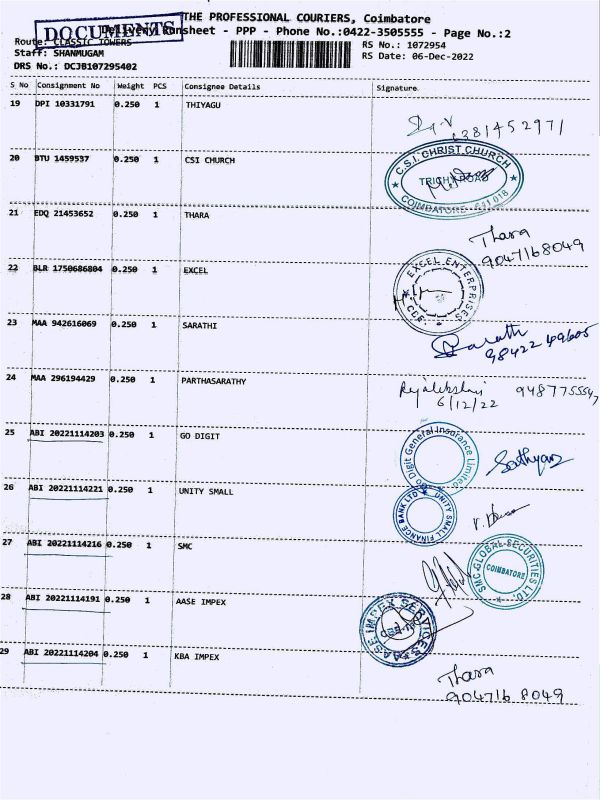 DOCUMENTS
THE PROFESSIONAL COURIERS, Coimbatore
Delivery Runsheet - PPP - Phone No.:0422-3505555 - Page No.:2
Route: CLASSIC TOWERS
Staff: SHANMUGAM
DRS No.: DCJB107295402
RS No.: 1072954
RS Date: 06-Dec-2022
S No Consignment No Weight PCS Consignee Details Signature
19 DPI 10331791 0.250 1 THIYAGU
20 BTU 1459537 0.250 1 CSI CHURCH
C.S.I. CHRIST CHURCH
TRICHY ROAD
COIMBATORE - 641 018
21 EDQ 21453652 0.250 1 THARA
Thara
9047168049
22 BLR 1750686804 0.250 1 EXCEL
EXCEL ENTERPRISES
23 MAA 942616069 0.250 1 SARATHI
Sarath
24 MAA 296194429 0.250 1 PARTHASARATHY
6/12/22
25 ABI 20221114203 0.250 1 GO DIGIT
Go Digit General Insurance Limited
Sathya
26 ABI 20221114221 0.250 1 UNITY SMALL
UNITY SMALL FINANCE BANK LTD
27 ABI 20221114216 0.250 1 SMC
SMC GLOBAL SECURITIES LTD.
COIMBATORE
28 ABI 20221114191 0.250 1 AASE IMPEX
AASE IMPEX SERVICES
29 ABI 20221114204 0.250 1 KBA IMPEX
Thara
9047168049